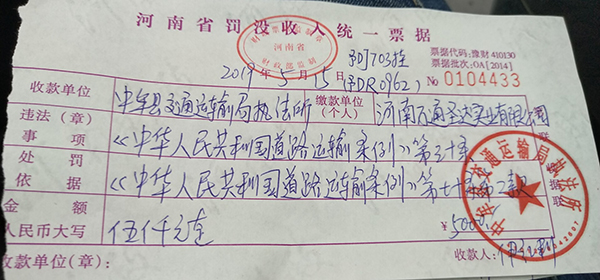 河南省罚没收入统一票据
财政票据监制章
河南省
财政部监制
豫DJ703挂
票据代码:豫财410130
票据批次:OA[2014]
2019年5月15日 (豫DR0962) No 0104433
收款单位 中牟县交通运输局执法所 缴款单位(个人) 河南万通圣达实业有限公司
违法(章)事项 《中华人民共和国道路运输条例》第三十条
处罚依据 《中华人民共和国道路运输条例》第七十条第二款
金额
人民币大写 伍仟元正 ¥5000
收款单位(章): 收款人:
中牟县交通运输局执法所